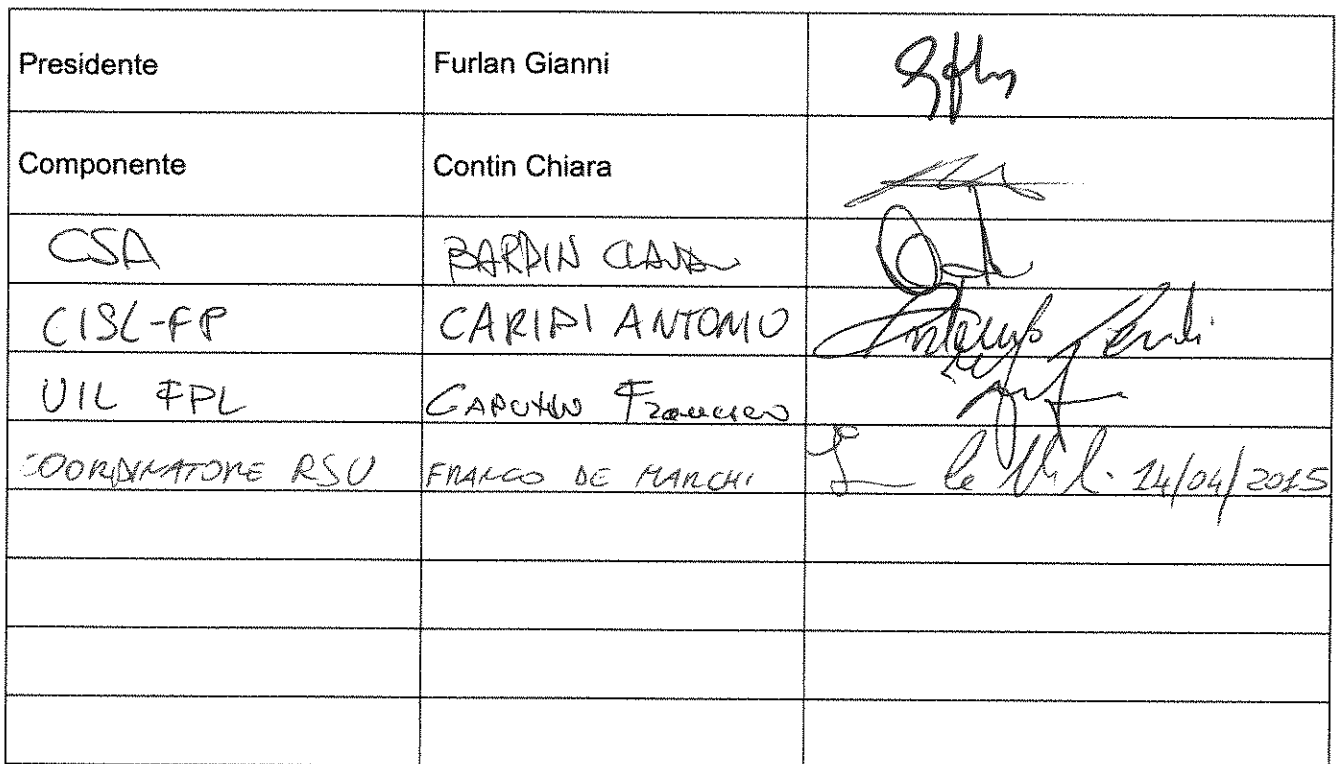 Presidente Furlan Gianni
Componente Contin Chiara
CSA BARDIN
CISL-FP CARIDI ANTONIO
UIL FPL Francesco
COORDINATORE RSU FRANCO DE MARCHI 14/04/2015